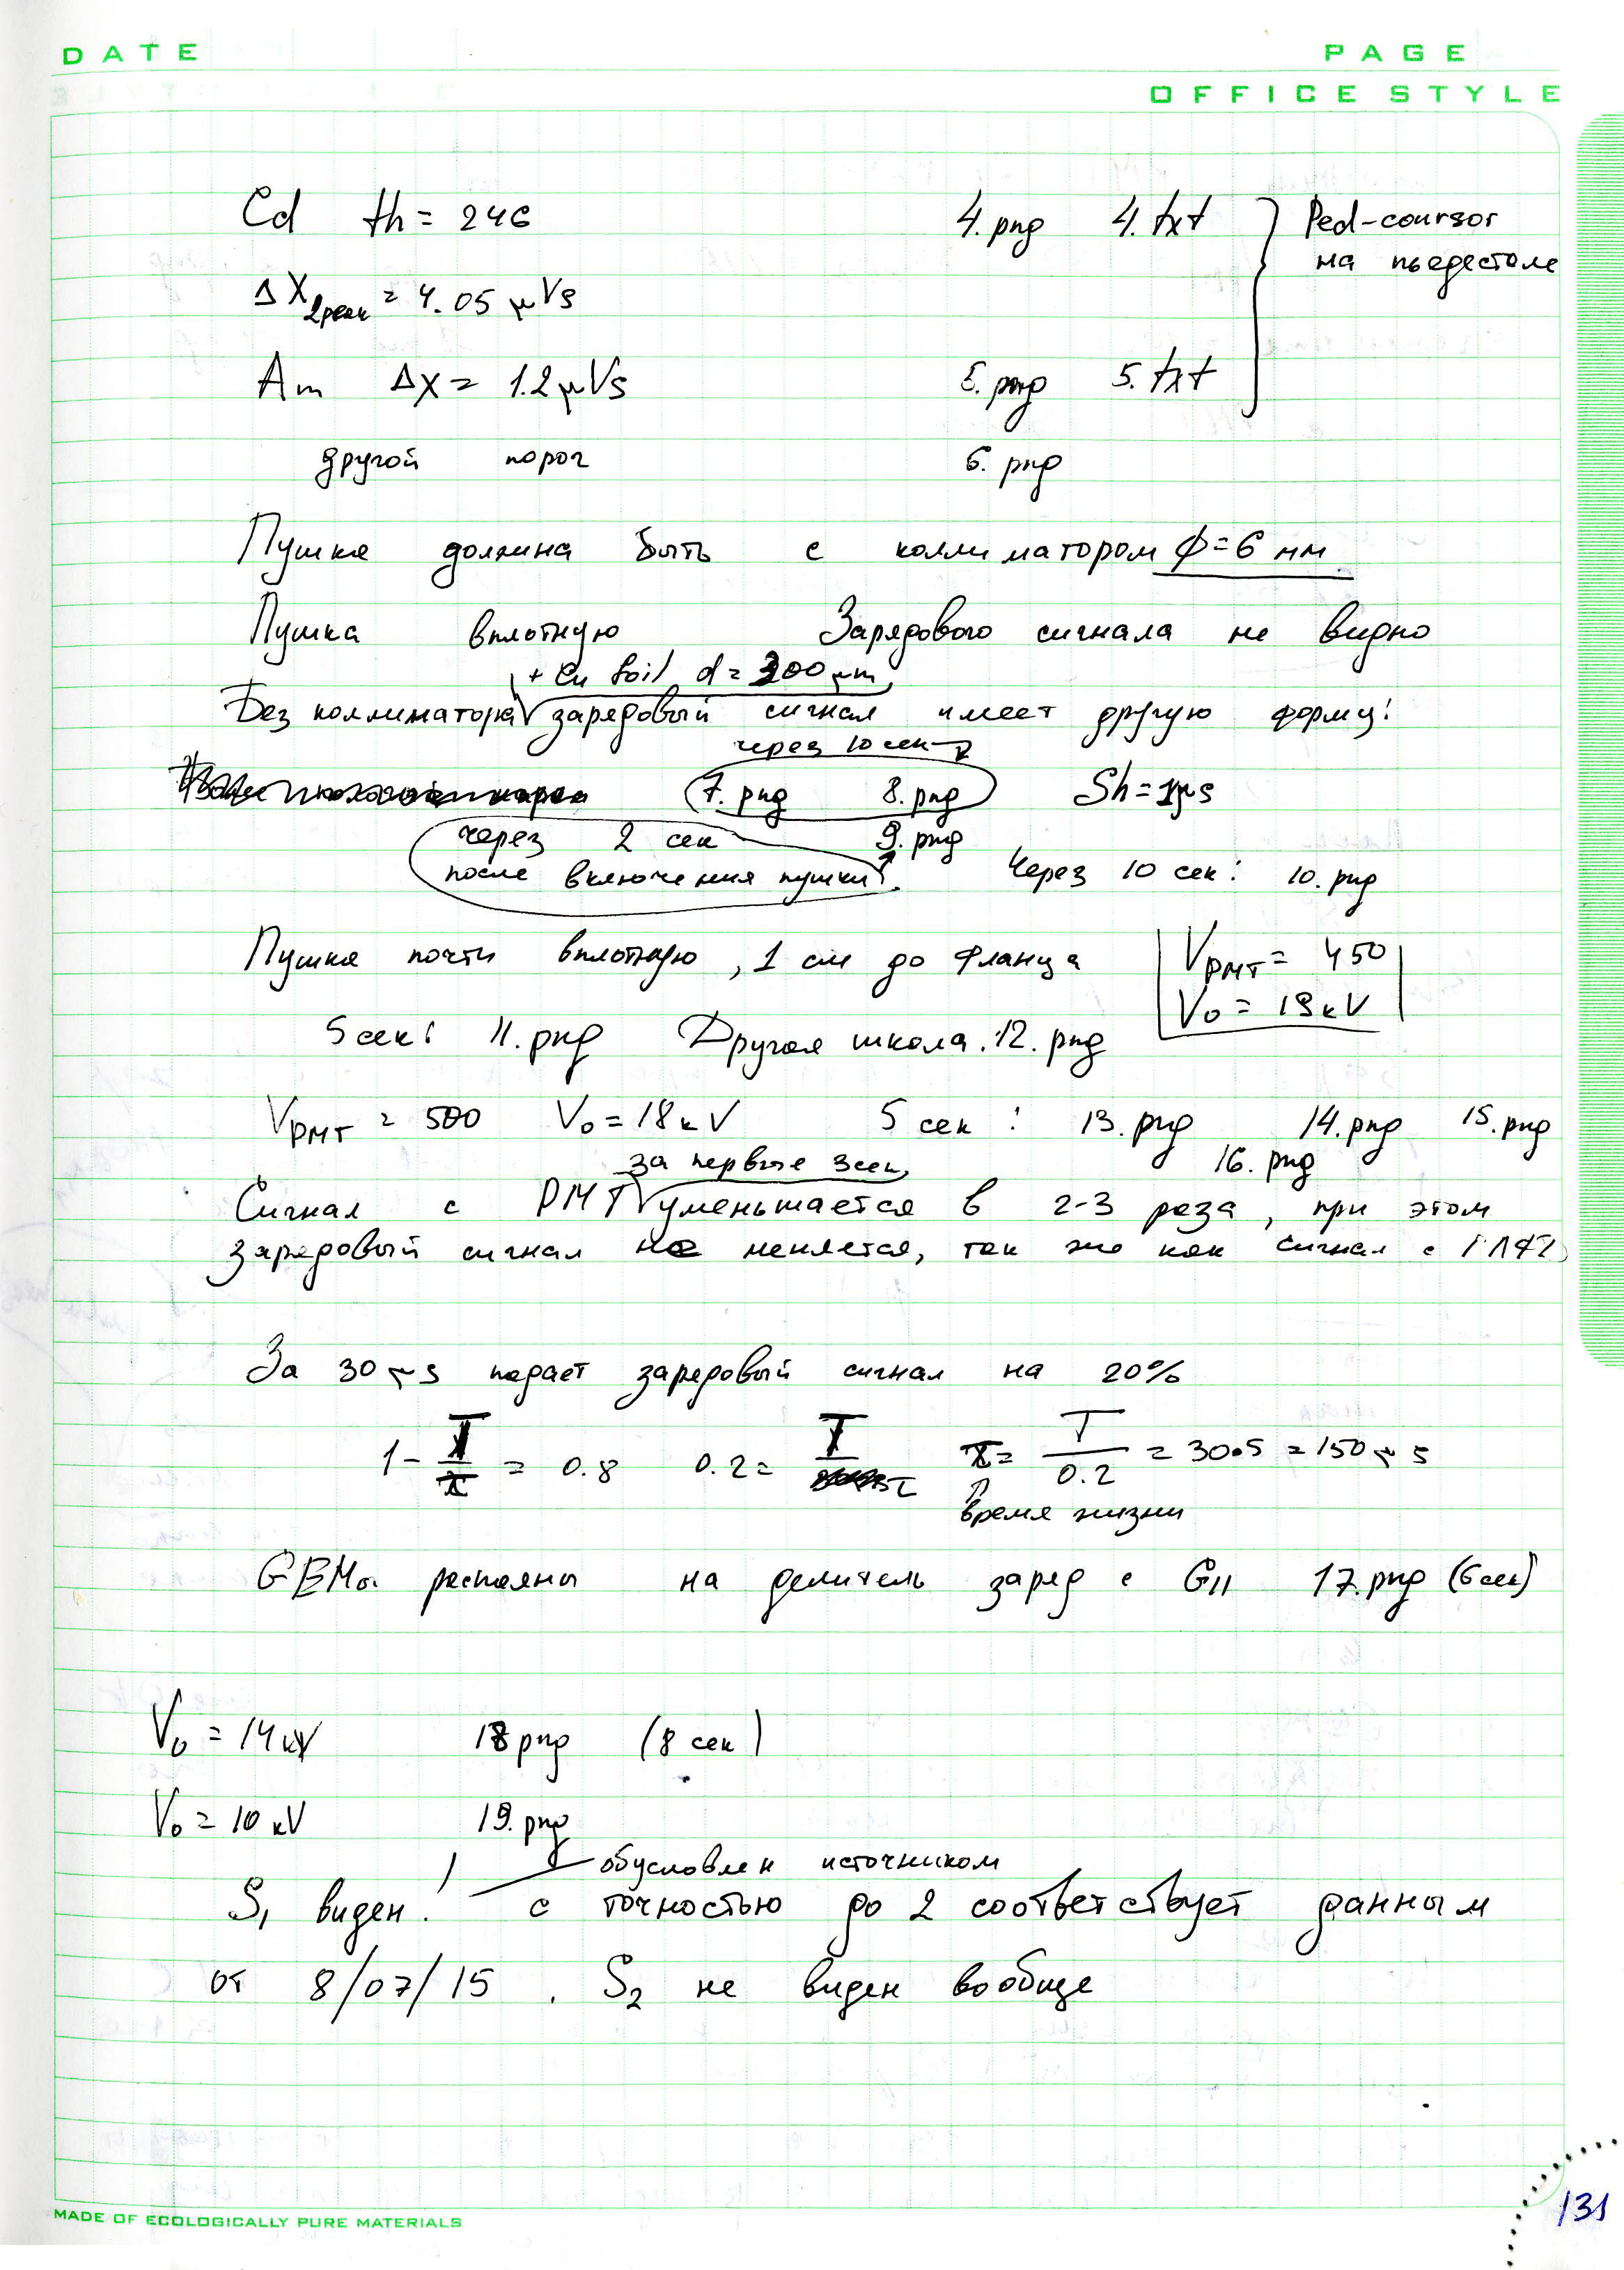 DATE
PAGE
OFFICE STYLE
Cd th = 246 4.png 4.txt Ped-coursor
на пьедестале
ΔX2peak = 4.05 μVs
Am ΔX = 1.2 μVs 5.png 5.txt
другой порог 6.png
Пушка должна быть с коллиматором ϕ=6 мм
Пушка вплотную Зарядового сигнала не видно
+ Cu foil d = 300 μm
Без коллиматора зарядовый сигнал имеет другую форму:
через 10 сек
7.png 8.png Sh = 1μs
через 2 сек 9.png
после включения пушки. Через 10 сек: 10.png
Пушка почти вплотную, 1 см до фланца VPMT = 450
V0 = 18 kV
5 сек: 11.png Другая школа. 12.png
VPMT = 500 V0 = 18 kV 5 сек: 13.png 14.png 15.png
за первые 3сек 16.png
Сигнал с PMT уменьшается в 2-3 раза, при этом
зарядовый сигнал не меняется, так же как сигнал с
За 30 μs падает зарядовый сигнал на 20%
1 - T/τ = 0.8 0.2 = T/τ τ = T/0.2 = 30·5 = 150 μs
время жизни
GEMы распаяны на делитель заряд с 17.png (6сек)
V0 = 14 kV 18png (8 сек)
V0 = 10 kV 19.png
обусловлен источником
S1 виден! с точностью до 2 соответствует данным
от 8/07/15. S2 не виден вообще
MADE OF ECOLOGICALLY PURE MATERIALS
131